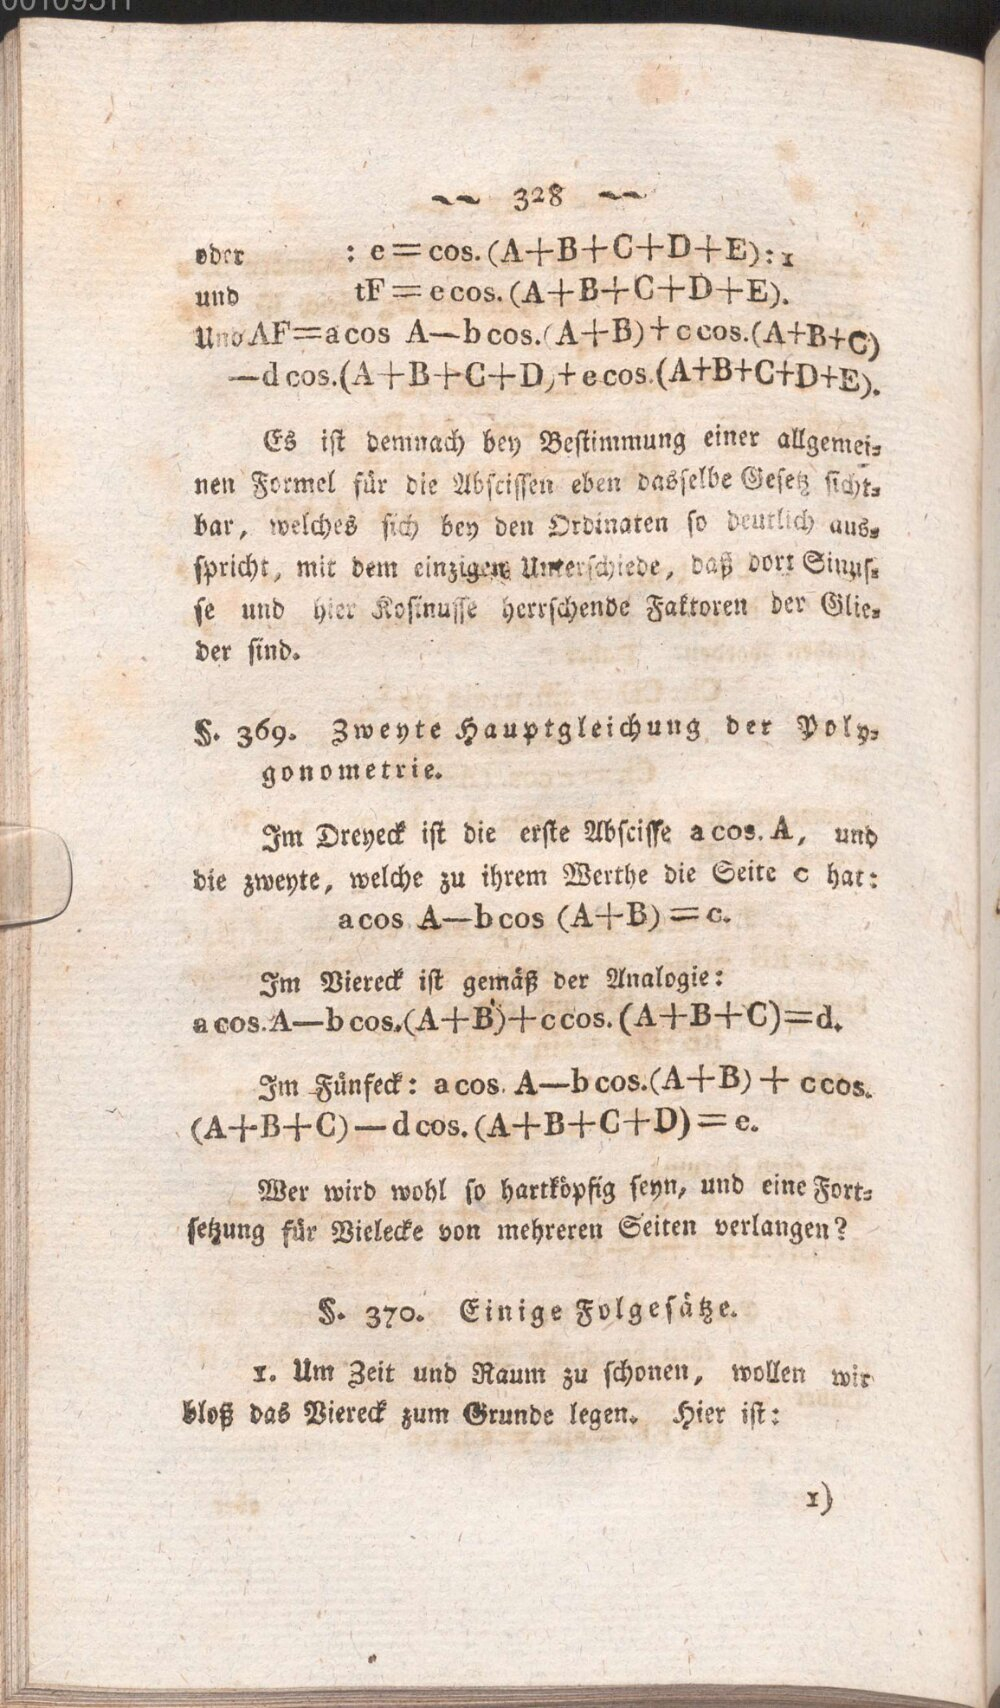 ~~ 328 ~~
oder : e = cos. (A+B+C+D+E): 1
und tF = e cos. (A+B+C+D+E).
Und AF = a cos A—b cos. (A+B) + c cos. (A+B+C)
—d cos. (A+B+C+D) + e cos. (A+B+C+D+E).
Es ist demnach bey Bestimmung einer allgemei-
nen Formel für die Abscissen eben dasselbe Gesetz sicht-
bar, welches sich bey den Ordinaten so deutlich aus-
spricht, mit dem einzigen Unterschiede, daß dort Sinus-
se und hier Kosinusse herrschende Faktoren der Glie-
der sind.
§. 369. Zweyte Hauptgleichung der Poly-
gonometrie.
Im Dreyeck ist die erste Abscisse a cos. A, und
die zweyte, welche zu ihrem Werthe die Seite c hat:
a cos A—b cos (A+B) = c.
Im Viereck ist gemäß der Analogie:
a cos. A—b cos. (A+B)+c cos. (A+B+C)=d.
Im Fünfeck: a cos. A—b cos. (A+B) + c cos.
(A+B+C)—d cos. (A+B+C+D) = e.
Wer wird wohl so hartköpfig seyn, und eine Fort-
setzung für Vielecke von mehreren Seiten verlangen?
§. 370. Einige Folgesätze.
1. Um Zeit und Raum zu schonen, wollen wir
bloß das Viereck zum Grunde legen. Hier ist:
1)